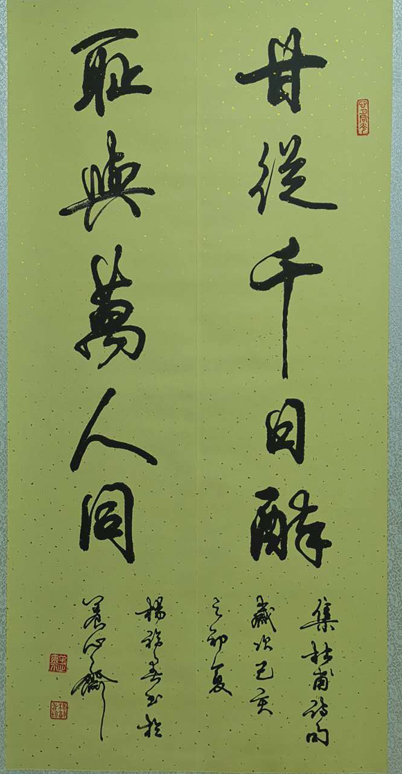 甘從千日醉
集杜甫詩句
歲次己亥
之初夏
耻與萬人同
楊 書於
養心齋